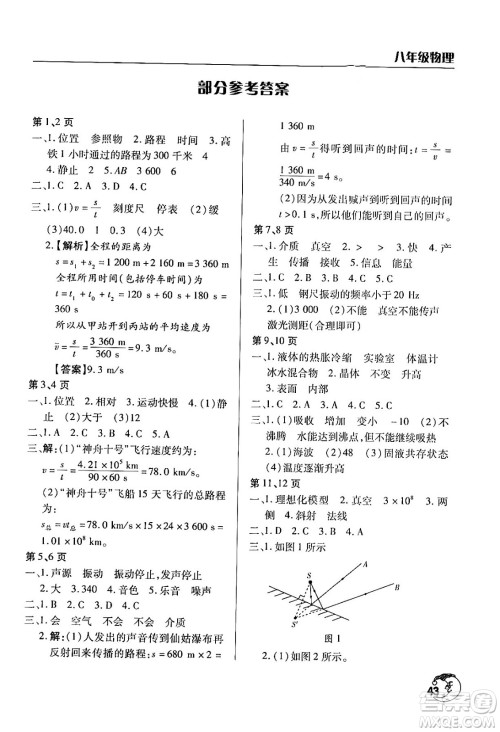 八年级物理
部分参考答案
第1、2页
一、1.位置 参照物 2.路程 时间 3.高
铁1小时通过的路程为300千米 4
4.静止 5.AB 3 600 6.4
二、1.C 2.D 3.D 4.C
三、1.(1)v=s/t 刻度尺 停表 (2)缓
(3)40.0 1 0.3 (4)大
2.【解析】全程的距离为
s=s₁+s₂=1 200 m+2 160 m=3 360 m
全程所用时间(包括停车时间)
t=t₁+t₀+t₂=120 s+60 s+180 s=
360 s
所以从甲站开到两站的平均速度为
v̄=s/t=3 360 m/360 s=9.3 m/s
【答案】9.3 m/s
第3、4页
一、1.位置 2.相对 3.运动快慢
(1)大于 (3)12
二、1.D 2.A 3.C 4.B
三、解:(1)“神舟十号”飞行速度约为:
v=s/t=4.21×10⁵ km/90×60 s=78.0 km/s
(2)“神舟十号”飞船15天飞行的总路程
为:
s总=vt总=78.0 km/s×15×24×3 600 s=
1.01×10⁸ km
第5、6页
一、1.声源 振动 振动停止,发声停止
2.大 3.340 4.音色 5.乐音 噪声
二、1.D 2.C 3.B 4.A
三、1.会 空气 不会 不会 介质
2.解:(1)人发出的声音传到仙姑瀑布再
反射回来传播的路程:s=680 m×2=
1 360 m
由v=s/t得听到回声的时间:t=s/v=
1 360 m/340 m/s=4 s
(2)因为从发出喊声到听到回声的时间
t>0.1 s,所以此人能听到自己的回声。
第7、8页
一、1.介质 真空 2.> > 3.低 4.产
生 传播 接收 5.信息 能量
二、1.C 2.B 3.C 4.A
三、1.低 钢尺振动的频率小于20 Hz
2.(1)3 000 m (2)不能 真空不能传声
激光测距(合理即可)
第9、10页
一、1.液体的热胀冷缩 实验室 体温计
2.冰水混合物 1 不变 升高
3.表面 内部
二、1.D 2.C 3.A 4.B
三、1.(1)吸收 增加 不变 -10 (2)不
沸腾 水能达到沸点,但不能继续吸热
2.(1)海波 (2)48 (3)固液共存状态
(4)温度逐渐升高
第11、12页
一、1.理想化模型 2.真空 3×10⁸ 3.两
侧 4.斜射 法线
二、1.D 2.D 3.A 4.C
三、1.如图1所示
A
B
S
S′
图1
2.(1)如图2所示。
43
答案